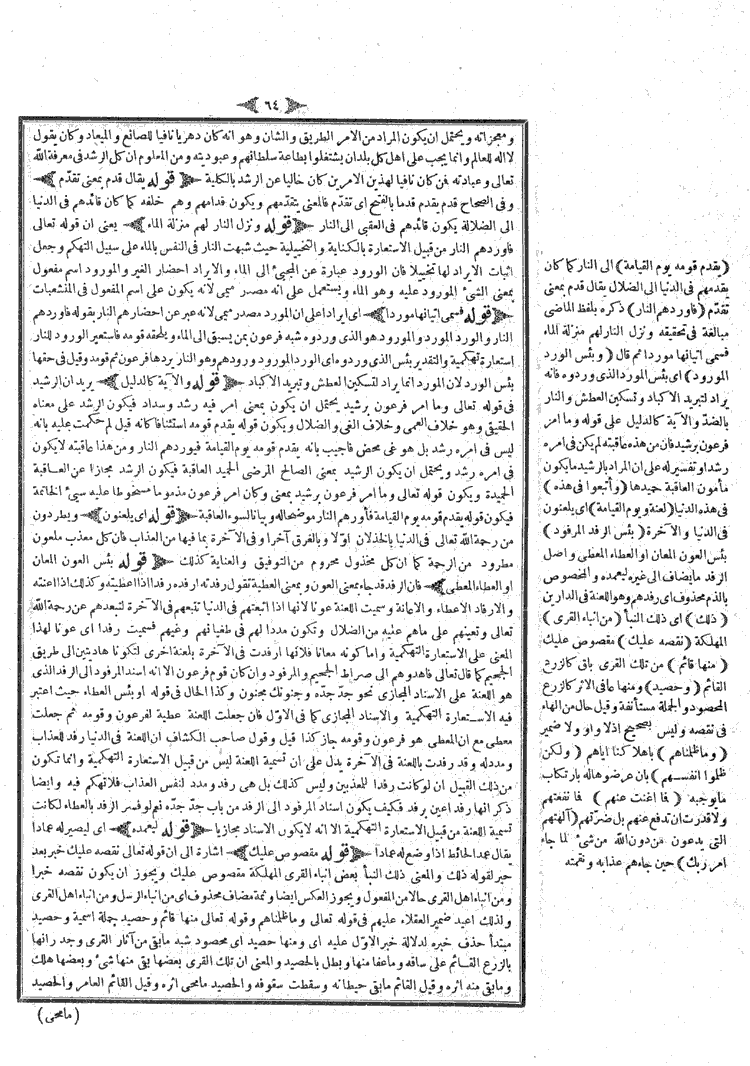 ٦٤
ومعجزاته ويحتمل ان يكون المراد من الامر الطريق والشان وهو انه كان دهريا نافيا للصانع والميعاد وكان يقول
لااله للعالم وانما يجب على اهل كل بلدان يشتغلوا بطاعة سلطانهم وعبوديته ومن المعلوم ان كل الرشد فى معرفة الله
تعالى وعبادته فمن كان نافيا لهذين الامرين كان خاليا عن الرشد بالكلية ﴿ قوله يقال قدم بمعنى تقدّم ﴾
وفى الصحاح قدم يقدم قدما بالفتح اى تقدّم فالمعنى يتقدّمهم ويكون قدامهم وهم خلفه كما كان قائدهم فى الدنيا
الى الضلالة يكون قائدهم فى العقبى الى النار ﴿ قوله ونزل النار لهم منزلة الماء ﴾ يعنى ان قوله تعالى
فاوردهم النار من قبيل الاستعارة بالكناية والتخييلية حيث شبهت النار فى النفس بالماء على سبيل التهكم وجعل
اثبات الايراد لها تخييلا فان الورود عبارة عن المجيئ الى الماء والايراد احضار الغير والمورود اسم مفعول
بمعنى الشئ المورود عليه وهو الماء ويستعمل على انه مصدر ميمى لانه يكون على اسم المفعول فى المنشعبات
﴿ قوله فسمى اتيانها موردا ﴾ اى ايراد اعلى ان المورد مصدر ميمى لانه عبر عن احضارهم النار بقوله فاوردهم
النار والورد المورد والمورود هو الذى وردوه شبه فرعون بمن يسبق الى الماء ويلحقه قومه فاستعير الورود للنار
استعارة تهكمية والتقدير بئس الذى وردوه اى الورد المورود ورودهم وهو النار يردها فرعون ثم قومه وقيل فى حقها
بئس الورد لان المورد انما يراد لتسكين العطش وتبريد الاكباد ﴿ قوله والآية كالدليل ﴾ يريد ان الرشيد
فى قوله تعالى وما امر فرعون برشيد يحتمل ان يكون بمعنى امر فيه رشد وسداد فيكون الرشد على معناه
الحقيقى وهو خلاف العمى وخلاف الغى والضلال ويكون قوله يقدم قومه استئنافا كانه قيل لم حكمت عليه بانه
ليس فى امره رشد بل هو غى محض فاجيب بانه يقدم قومه يوم القيامة فيوردهم النار ومن هذا عاقبته لايكون
فى امره رشد ويحتمل ان يكون الرشيد بمعنى الصالح المرضى الحميد العاقبة فيكون الرشد مجازا عن العاقبة
الحميدة ويكون قوله تعالى وما امر فرعون برشيد بمعنى وكان امر فرعون مذموما مسخوطا عليه سيئ الخاتمة
فيكون قوله يقدم قومه يوم القيامة فأوردهم النار موضحاله وبيانا لسوء العاقبة ﴿ قوله اى يلعنون ﴾ ويطردون
من رحمة الله تعالى فى الدنيا بالخذلان اولا وبالغرق آخرا وفى الآخرة بما فيها من العذاب فان كل معذب ملعون
مطرود من الرحمة كما ان كل مخذول محروم من التوفيق والعناية كذلك ﴿ قوله بئس العون المعان
او العطاء المعطى ﴾ فان الرفد قد جاء بمعنى العون وبمعنى العطية تقول رفدته ارفده رفدا اذا اعطيته وكذلك اذا اعنته
والارفاد الاعطاء والاعانة وسميت اللعنة عونا لانها اذا اتبعتهم فى الدنيا تتبعهم فى الآخرة لتبعدهم عن رحمة الله
تعالى وتعينهم على ماهم عليه من الضلال وتكون مددا لهم فى طغيانهم وغيهم فسميت رفدا اى عونا لهذا
المعنى على الاستعارة التهكمية واما كونه معانا فلانها ارفدت فى الآخرة بلعنة اخرى لتكونا هاديتين الى طريق
الجحيم كما قال تعالى فاهدوهم الى صراط الجحيم والمرفود وان كان قوم فرعون الا انه اسند المرفود الى الرفد الذى
هو اللعنة على الاسناد المجازى نحو جدّ جدّه وجنونك مجنون وكذا الحال فى قوله او بئس العطاء حيث اعتبر
فيه الاستعارة التهكمية والاسناد المجازى كما فى الاوّل فان جعلت اللعنة عطية لفرعون وقومه ثم جعلت
معطى مع ان المعطى هو فرعون وقومه جاز كذا قيل وقول صاحب الكشاف ان اللعنة فى الدنيا رفد للعذاب
ومدد له وقد رفدت باللعنة فى الآخرة يدل على ان تسمية اللعنة ليس من قبيل الاستعارة التهكمية وانما تكون
من ذلك القبيل ان لوكانت رفدا للمعذبين وليس كذلك بل هى رفد ومدد لنفس العذاب فلاتهكم فيه وايضا
ذكر انها رفد اعين برفد فكيف يكون اسناد المرفود الى الرفد من باب جدّ جدّه نعم لو فسر الرفد بالعطاء لكانت
تسمية اللعنة من قبيل الاستعارة التهكمية الا انه لايكون الاسناد مجازيا ﴿ قوله ليعمده ﴾ اى ليصير له عمادا
يقال عمد الحائط اذا وضع له عمادا ﴿ قوله مقصوص عليك ﴾ اشارة الى ان قوله تعالى نقصه عليك خبر بعد
خبر لقوله ذلك والمعنى ذلك النبأ بعض انباء القرى المهلكة مقصوص عليك ويجوز ان يكون نقصه خبرا
ومن انباء اهل القرى حالا من المفعول ويجوز العكس ايضا وثمة مضاف محذوف اى من انباء الرسل ومن انباء اهل القرى
ولذلك اعيد ضمير العقلاء عليهم فى قوله تعالى وما ظلمناهم وقوله تعالى منها قائم وحصيد جملة اسمية وحصيد
مبتدأ حذف خبره لدلالة خبر الاوّل عليه اى ومنها حصيد اى محصود شبه مابقى من آثار القرى وجدرانها
بالزرع القائم على ساقه وماعفا منها وبطل بالحصيد والمعنى ان تلك القرى بعضها بقى منها شئ وبعضها هلك
ومابقى منه اثره وقيل القائم مابقى حيطانه وسقطت سقوفه والحصيد مامحى اثره وقيل القائم العامر والحصيد
(مامحى)
(يقدم قومه يوم القيامة) الى النار كما كان
يقدمهم فى الدنيا الى الضلال يقال قدم بمعنى
تقدّم (فاوردهم النار) ذكره بلفظ الماضى
مبالغة فى تحقيقه ونزل النار لهم منزلة الماء
فسمى اتيانها موردا ثم قال (وبئس الورد
المورود) اى بئس المورد الذى وردوه فانه
يراد لتبريد الاكباد وتسكين العطش والنار
بالضدّ والآية كالدليل على قوله وما امر
فرعون برشيد فان من هذه عاقبته لم يكن فى امره
رشد او تفسير له على ان المراد بالرشيد مايكون
مأمون العاقبة حميدها (وأتبعوا فى هذه)
فى هذه الدنيا (لعنة ويوم القيامة) اى يلعنون
فى الدنيا والآخرة (بئس الرفد المرفود)
بئس العون المعان او العطاء المعطى واصل
الرفد مايضاف الى غيره ليعمده والمخصوص
بالذم محذوف اى رفدهم وهو اللعنة فى الدارين
(ذلك) اى ذلك النبأ (من انباء القرى)
المهلكة (نقصه عليك) مقصوص عليك
(منها قائم) من تلك القرى باق كالزرع
القائم (وحصيد) ومنها عافى الاثر كالزرع
المحصود والجملة مستأنفة وقيل حال من الهاء
فى نقصه وليس بصحيح اذلا واو ولا ضمير
(وما ظلمناهم) باهلاكنا اياهم (ولكن
ظلموا انفسهم) بان عرضوها له بارتكاب
مايوجبه (فما اغنت عنهم) فما نفعتهم
ولا قدرت ان تدفع عنهم بل ضرّتهم (آلهتهم
التى يدعون من دون الله من شئ لما جاء
امر ربك) حين جاءهم عذابه ونقمته